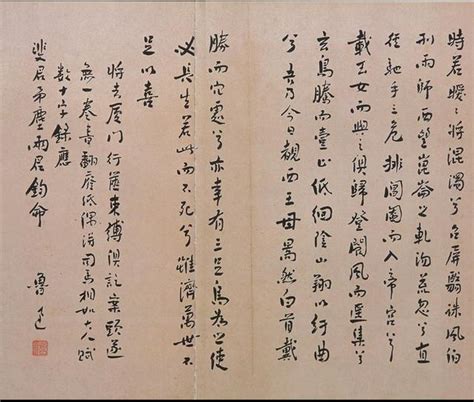 時若曖曖將混濁兮召屏翳誅風伯
刑雨師西望崑崙之軋沕荒忽兮直
徑馳乎三危排閶闔而入帝宮兮
載玉女而與之俱歸登閬風而遙集兮
亢鳥騰而壹止低徊陰山翔以紆曲
兮吾乃今日覩西王母暠然白首戴
勝而穴處兮亦幸有三足烏為之使
必長生若此而不死兮雖濟萬世不
足以喜
將去廈門行篋束縛俱訖案頭遂
無一卷書翻廢紙偶得司馬相如大人賦
數十字錄應
斐君矛塵兩君鈞命
魯迅